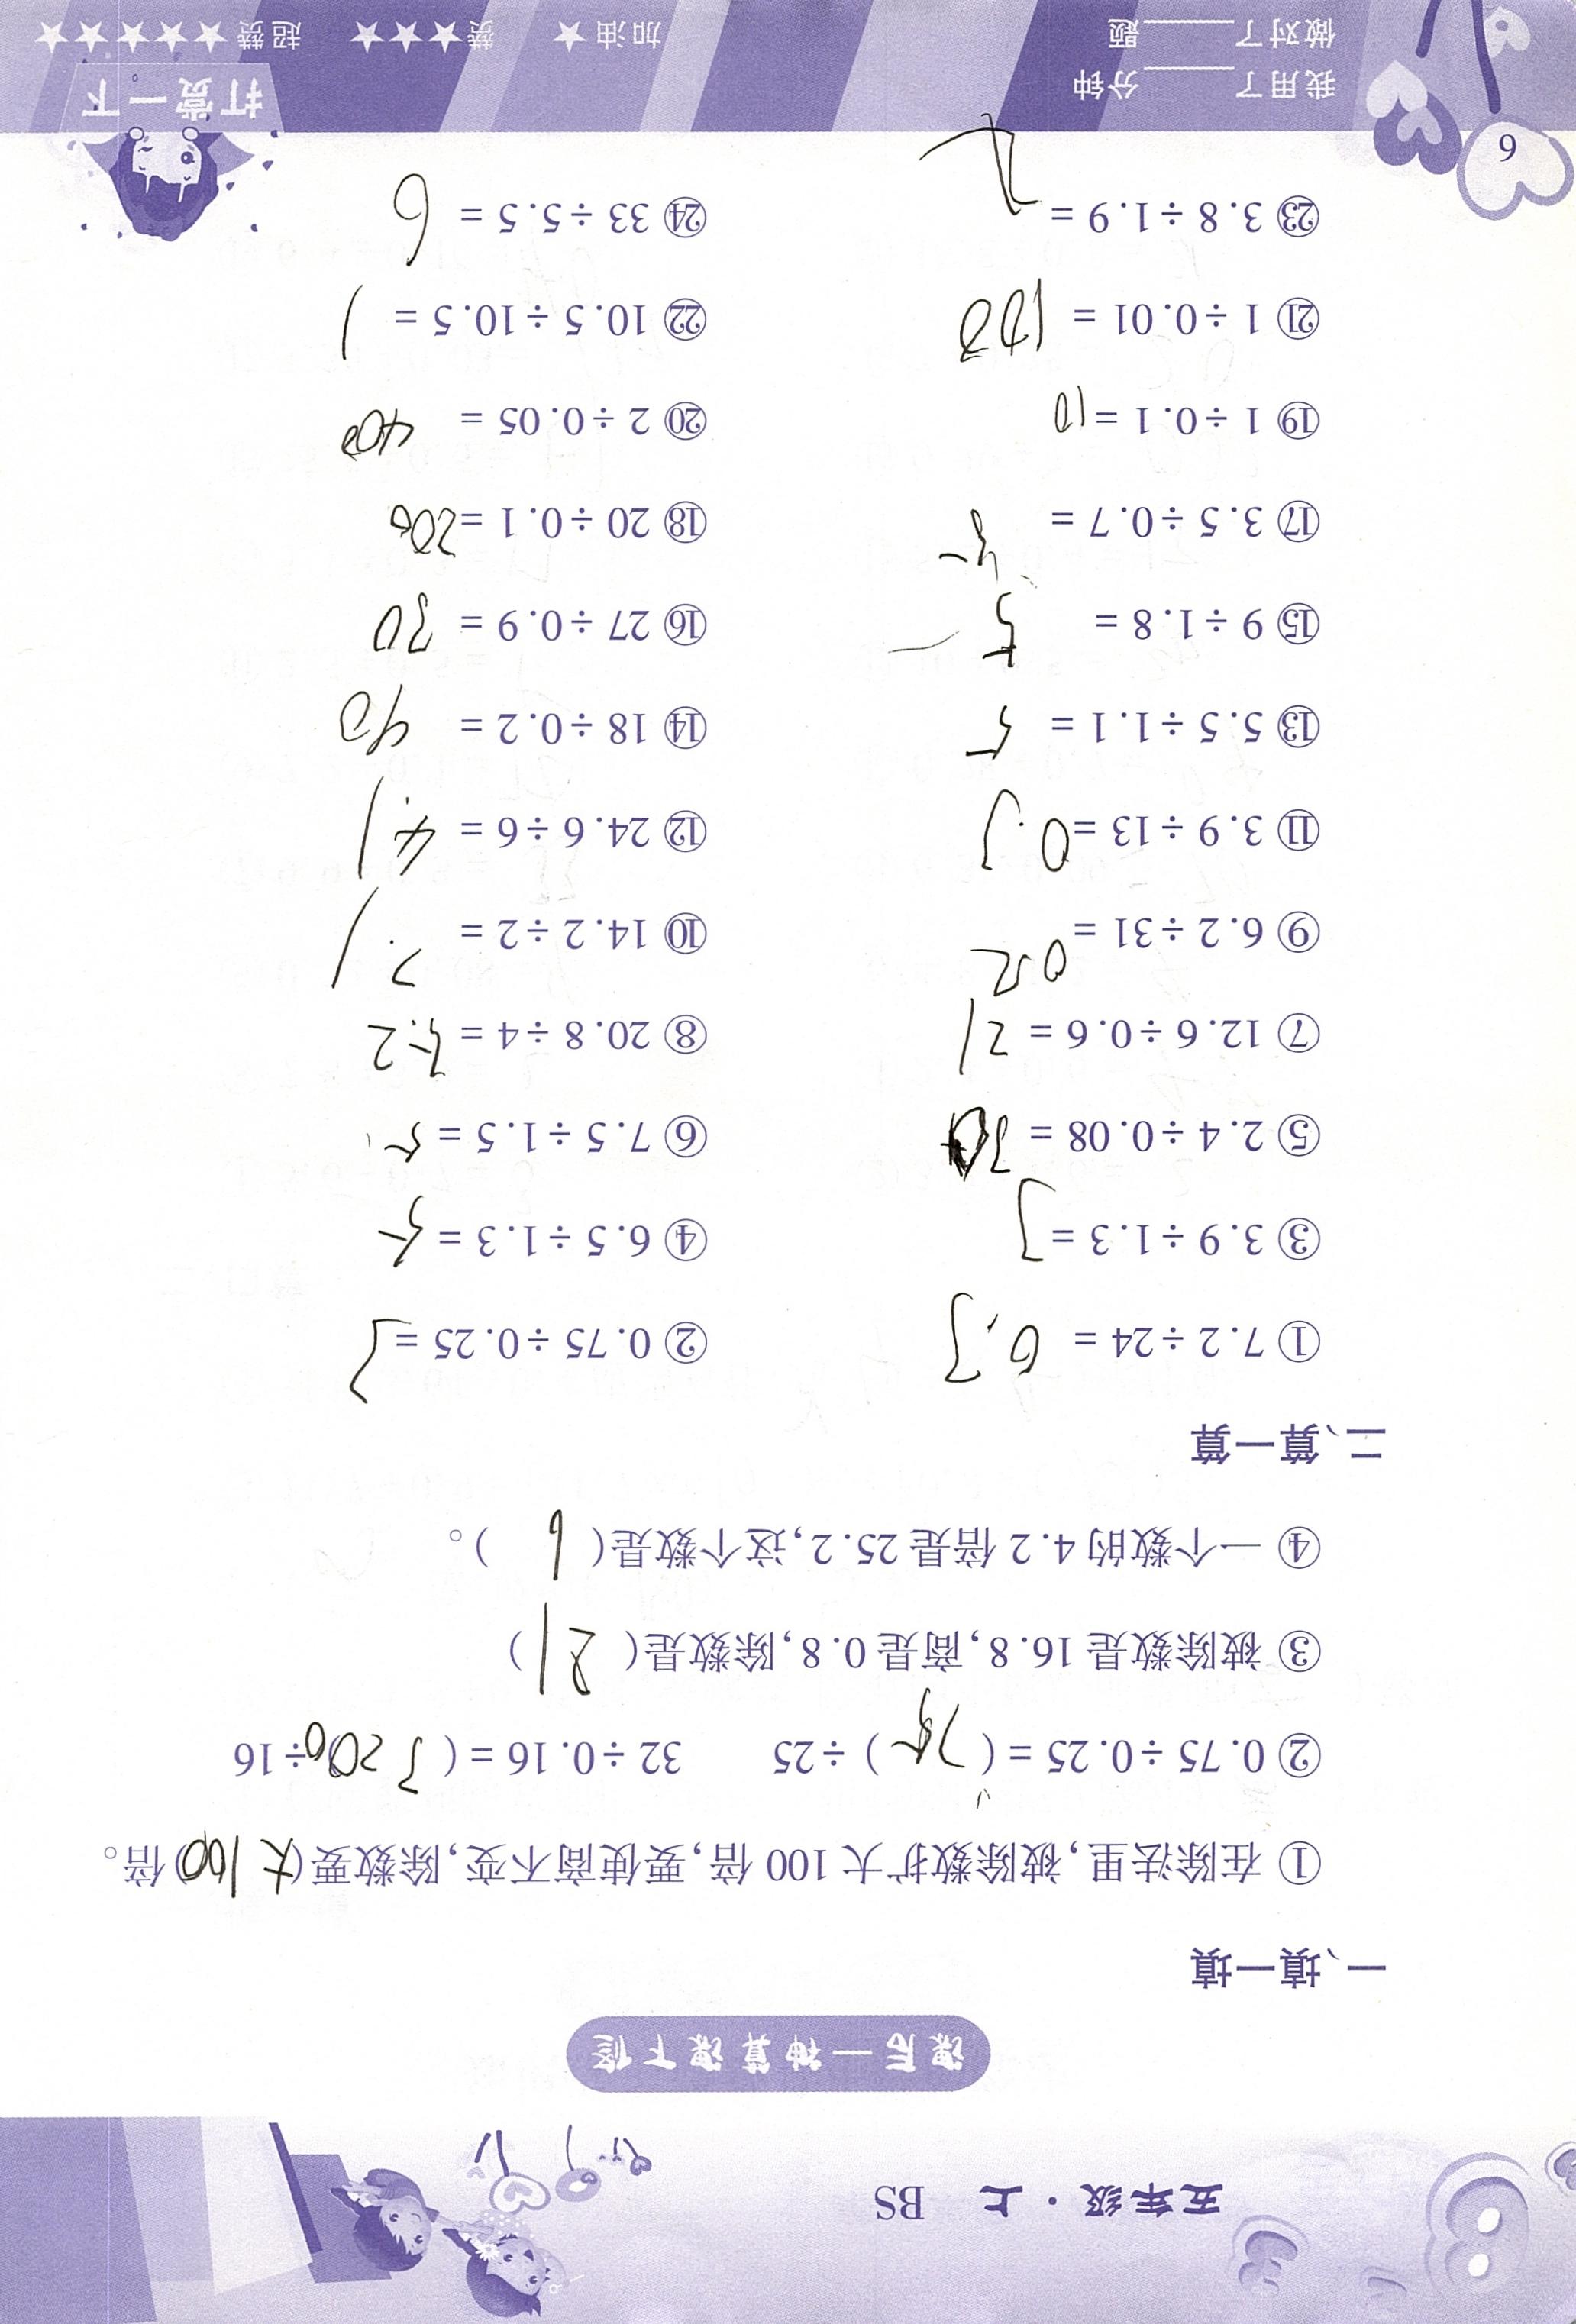 五年级·上 BS
课后一神算课下修
一、填一填
① 在除法里,被除数扩大 100 倍,要使商不变,除数要(大 100)倍。
② 0.75÷0.25=( 75 )÷25 32÷0.16=( 3200 )÷16
③ 被除数是 16.8,商是 0.8,除数是( 21 )
④ 一个数的 4.2 倍是 25.2,这个数是( 6 )。
二、算一算
① 7.2÷24= 0.3 ② 0.75÷0.25= 3
③ 3.9÷1.3= 3 ④ 6.5÷1.3= 5
⑤ 2.4÷0.08= 30 ⑥ 7.5÷1.5= 5
⑦ 12.6÷0.6= 21 ⑧ 20.8÷4= 5.2
⑨ 6.2÷31= 0.2 ⑩ 14.2÷2= 7.1
⑪ 3.9÷13= 0.3 ⑫ 24.6÷6= 4.1
⑬ 5.5÷1.1= 5 ⑭ 18÷0.2= 90
⑮ 9÷1.8= 5 ⑯ 27÷0.9= 30
⑰ 3.5÷0.7= 5 ⑱ 20÷0.1= 200
⑲ 1÷0.1= 10 ⑳ 2÷0.05= 400
㉑ 1÷0.01= 100 ㉒ 10.5÷10.5= 1
㉓ 3.8÷1.9= 2 ㉔ 33÷5.5= 6
6
我用了____分钟
做对了____题
打赏一下
加油★ 赞★★★ 超赞★★★★★